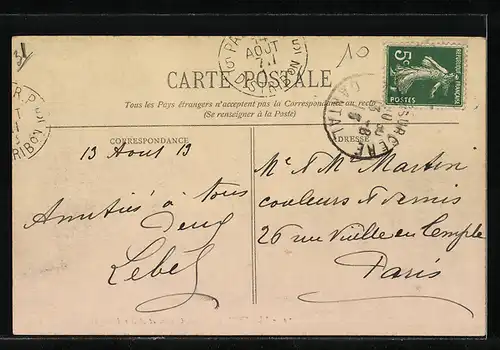 10
CARTE POSTALE
Tous les Pays étrangers n'acceptent pas la Correspondance au recto
(Se renseigner à la Poste)
CORRESPONDANCE
ADRESSE
5c
REPUBLIQUE FRANÇAISE
POSTES
14
AOUT
DISTRIBON
CANTAL
13 Aout 13
Amitiés à tous
deux
Lebel
Mr & M Martin
couleurs & vernis
26 rue Vieille du Temple
Paris